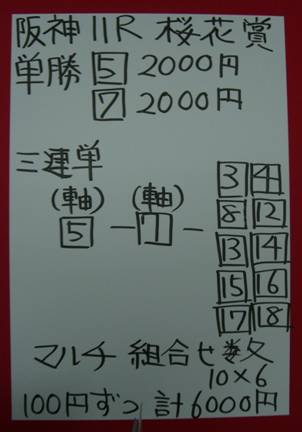 阪神11R 桜花賞
単勝 5 2000円
7 2000円
三連単
(軸) (軸)
5 - 7 -
3 4
8 12
13 14
15 16
17 18
マルチ 組合せ数
10×6
100円ずつ 計6000円